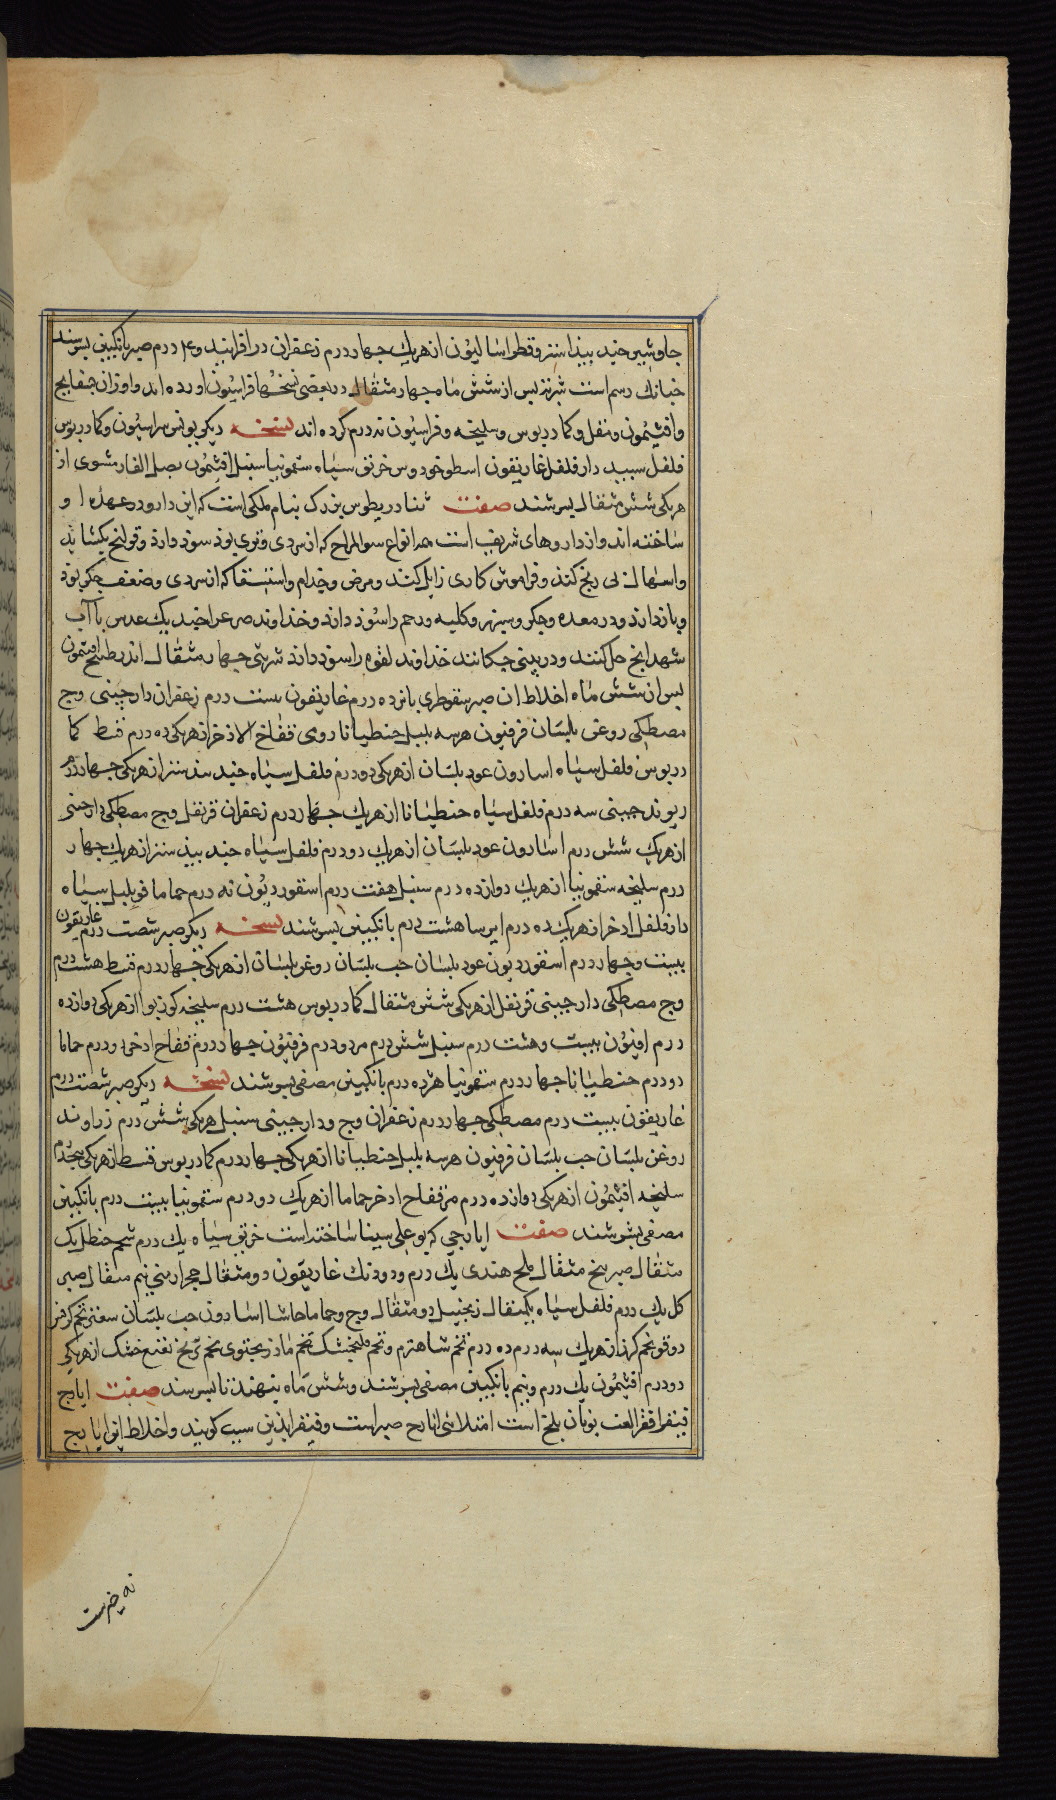 جاوشیر جند بیذاستر و فطراسالیون از هریک جهار درم زعفران در افزایند و ۴ درم صبر بانکبین بسرشند
جنانک رسم است شربتی بس از شش ماه جهار مثقال در بعضی نسخها فراسیون اورده اند و اوزان جنانج
وافتیمون ومقل وکمادریوس وسلیخه وفراسیون نه درم کرده اند نسخه دیکر یونس سراسیون وکمادریوس
فلفل سبید دارفلفل غاریقون اسطوخودوس خربق سیاه سقمونیا سنبل افتیمون بصل الفار مشوی از
هریکی شش مثقال بسرشند صفت ثنادریطوس بزرک بنام ملکی است که این دارو در عهد او
ساخته اند واز داروهای شریف است همه انواع سوالمزاج که از سردی وتری بوذ سوذ دارذ وقولنج بکشاید
واسهال بی رنج کند وفراموش کاری زایل کند ومرض وجذام واستسقا که از سردی وضعف جکر بوذ
وبازدارذ ودرد معده وجکر وسبرز وکلیه ورحم را سوذ دارذ وخداوند صرع را جند یک عدس با آب
شهدانج حل کنند ودر بینی جکانند خداوند لقوه را سوذ دارذ شربتی جهار مثقال اندر طبیخ افتیمون
بس از شش ماه اخلاط ان صبر سقوطری بانزده درم غاریقون بیست درم زعفران دارجینی وج
مصطکی روغن بلسان فرفیون هر سه بلبل جنطیانا رومی فقاخ الاذخر از هریکی ده درم قسط کما
دریوس فلفل سیاه اسارون عود بلسان از هریکی دو درم فلفل سیاه جند بیدستر از هریکی جهار درم
ریوند جینی سه درم فلفل سیاه جنطیانا از هریک جهار درم زعفران قرنفل وج مصطکی دارجینی
از هریک شش درم اسارون عود بلسان از هریک دو درم فلفل سیاه جند بیذ ستر از هریک جهار
درم سلیخه سقمونیا از هریک دوازده درم سنبل هفت درم اسقوردیون نه درم حماما فو بلبل سیاه
دارفلفل اذخر از هریک ده درم ایرسا هشت درم بانکبین بسرشند نسخه دیکر صبر شصت درم غاریقون
بیست وجهار درم اسقوردیون عود بلسان حب بلسان روغن بلسان از هریکی جهار درم قسط هشت درم
وج مصطکی دارجینی قرنفل از هریکی شش مثقال کمادریوس هشت درم سلیخه کوزبوا از هریکی دوازده
درم افتیمون بیست وهشت درم سنبل شش درم مر دو درم فرفیون جهار درم فقاح اذخر دو درم حماما
دو درم جنطیانا جهار درم سقمونیا هژده درم بانکبین مصفی بسرشند نسخه دیکر صبر شصت درم
غاریقون بیست درم مصطکی جهار درم زعفران وج ودارجینی سنبل هریکی شش درم زراوند
روغن بلسان حب بلسان فرفیون هر سه بلبل جنطیانا از هریکی جهار درم کمادریوس قسط از هریکی بنج درم
سلیخه افتیمون از هریکی دوازده درم مر فقاح اذخر حماما از هریک دو درم سقمونیا بیست درم بانکبین
مصفی بسرشند صفت ایارجی که بوعلی سینا ساخته است خربق سیاه یک درم شحم حنظل یک
مثقال صبر بنج مثقال ملح هندی یک درم ودو دنک غاریقون دو مثقال حجر ارمنی نیم مثقال صبر
کل یک درم فلفل سیاه یکمثقال زنجبیل دو مثقال وج وحماما حاشا اسارون حب بلسان سعتر تخم کرفس
دوقو تخم کرز از هریک سه درم ده درم تخم شاهترم وتخم فلنجمشک تخم باذرنجبوی تخم ترنج نعنع خشک از هریکی
دو درم افتیمون یک درم ونیم بانکبین مصفی بسرشند وشش ماه بنهند تا بسرسد صفت ایارج
فیقرا فقرا لغت یونان تلخ است امتلاشی ایارح صبر است وفیقرا بذین سبب کویند واخلاط این ایارج